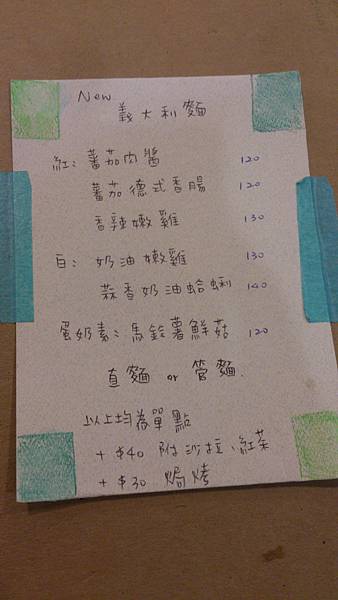 New
義大利麵
紅：蕃茄肉醬 120
蕃茄德式香腸 120
香辣嫩雞 130
白：奶油嫩雞 130
蒜香奶油蛤蜊 140
蛋奶素：馬鈴薯鮮菇 120
直麵 or 管麵.
以上均為單點
+ $40 附沙拉、紅茶
+ $30 焗烤